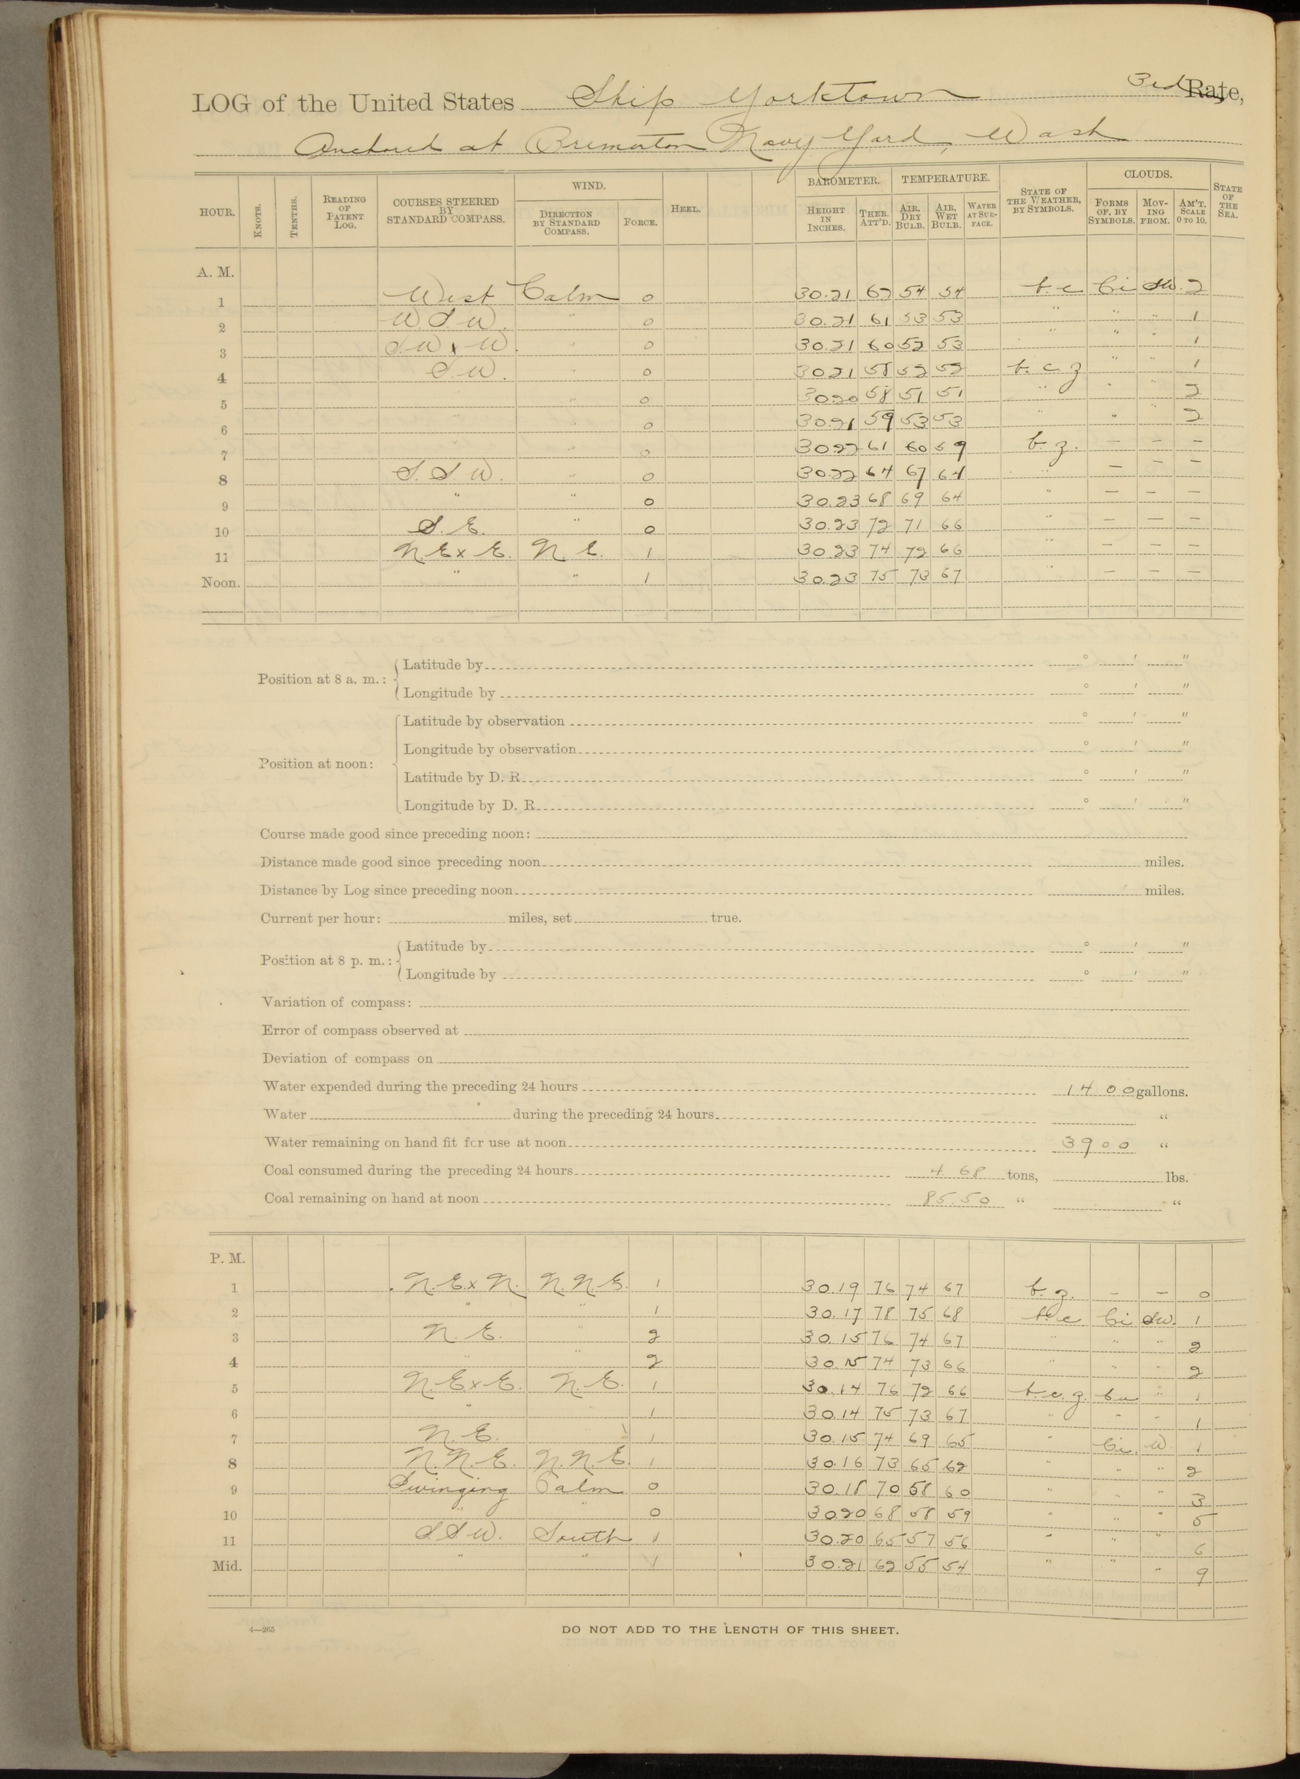 LOG of the United States Ship Yorktown 3rd Rate,
Anchored at Bremerton Navy Yard, Wash
HOUR. KNOTS. TENTHS. READING OF PATENT LOG. COURSES STEERED BY STANDARD COMPASS. WIND. DIRECTION BY STANDARD COMPASS. FORCE. HEEL. BAROMETER. HEIGHT IN INCHES. THER. ATT'D. TEMPERATURE. AIR, DRY BULB. AIR, WET BULB. WATER AT SURFACE. STATE OF THE WEATHER, BY SYMBOLS. CLOUDS. FORMS OF, BY SYMBOLS. MOVING FROM. AM'T, SCALE 0 TO 10. STATE OF THE SEA.
A. M.
1 West Calm 0 30.21 62 54 54 b.c Ci SW. 2
2 W S W. " 0 30.21 61 53 53 " " " 1
3 SW x W. " 0 30.21 60 52 53 " " " 1
4 S W. " 0 30.21 58 52 52 b. c. z " " 1
5 " " 0 30.20 58 51 51 " " " 2
6 " " 0 30.21 59 53 53 " " " 2
7 " " 0 30.22 61 60 59 b. z. — — —
8 S. S. W. " 0 30.22 64 67 61 " — — —
9 " " 0 30.23 68 69 64 " — — —
10 S. E. " 0 30.23 72 71 66 " — — —
11 N E x E. N E. 1 30.23 74 72 66 " — — —
Noon. " " 1 30.23 75 73 67 " — — —
Position at 8 a. m.: Latitude by ° ' "
Longitude by ° ' "
Position at noon: Latitude by observation ° ' "
Longitude by observation ° ' "
Latitude by D. R. ° ' "
Longitude by D. R. ° ' "
Course made good since preceding noon:
Distance made good since preceding noon miles.
Distance by Log since preceding noon miles.
Current per hour: miles, set true.
Position at 8 p. m.: Latitude by ° ' "
Longitude by ° ' "
Variation of compass:
Error of compass observed at
Deviation of compass on
Water expended during the preceding 24 hours 1400 gallons.
Water during the preceding 24 hours "
Water remaining on hand fit for use at noon 3900 "
Coal consumed during the preceding 24 hours 4 68 tons, lbs.
Coal remaining on hand at noon 85.50 " "
P. M.
1 N. E. x N. N. N. E. 1 30.19 76 74 67 b. z. — — 0
2 " " 1 30.17 78 75 68 b.c Ci SW. 1
3 N E. " 2 30.15 76 74 67 " " " 2
4 " " 2 30.15 74 73 66 " " " 2
5 N. E. x E. N. E. 1 30.14 76 72 66 b. c. z. Cu " 1
6 " " 1 30.14 75 73 67 " " " 1
7 N. E. " 1 30.15 74 69 65 " Ci. W. 1
8 N. N. E. N. N. E. 1 30.16 73 65 62 " " " 2
9 Swinging Calm 0 30.18 70 58 60 " " " 3
10 " " 0 30.20 68 58 59 " " " 5
11 S S W. South 1 30.20 65 57 56 " " " 6
Mid. " " 1 30.21 62 55 54 " " " 9
4—265
DO NOT ADD TO THE LENGTH OF THIS SHEET.